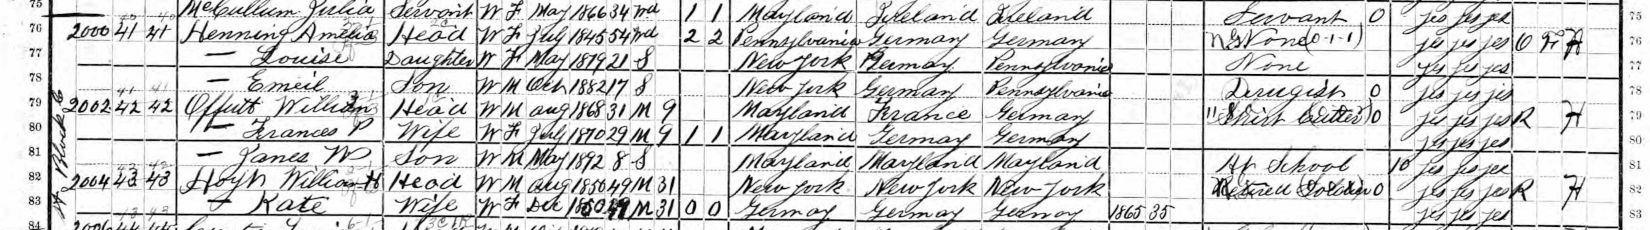 75 McCullum Julia Servant W F May 1866 34 Wd 1 1 Maryland Ireland Ireland Servant 0 yes yes yes 75
76 2000 41 41 Henning Amelia Head W F July 1845 54 Wd 2 2 Pennsylvania Germany Germany None (0-1-1) yes yes yes O F H 76
77 — Louise Daughter W F May 1879 21 S New York Germany Pennsylvania None yes yes yes 77
78 — Emeil Son W M Oct 1882 17 S New York Germany Pennsylvania Drugist 0 yes yes yes 78
79 2002 42 42 Offutt William Head W M aug 1868 31 M 9 Maryland France Germany Shirt Cutter 0 yes yes yes R H 79
80 — Frances P Wife W F July 1870 29 M 9 1 1 Maryland Germany Germany yes yes yes 80
81 — Janes W Son W M May 1892 8 S Maryland Maryland Maryland At School 10 yes yes yes 81
82 2004 43 43 Hoyh William H Head W M aug 1850 49 M 31 New York New York New York Retired 0 yes yes yes R H 82
83 — Kate Wife W F Dec 1850 49 M 31 0 0 Germany Germany Germany 1865 35 yes yes yes 83
84 2006 44 44